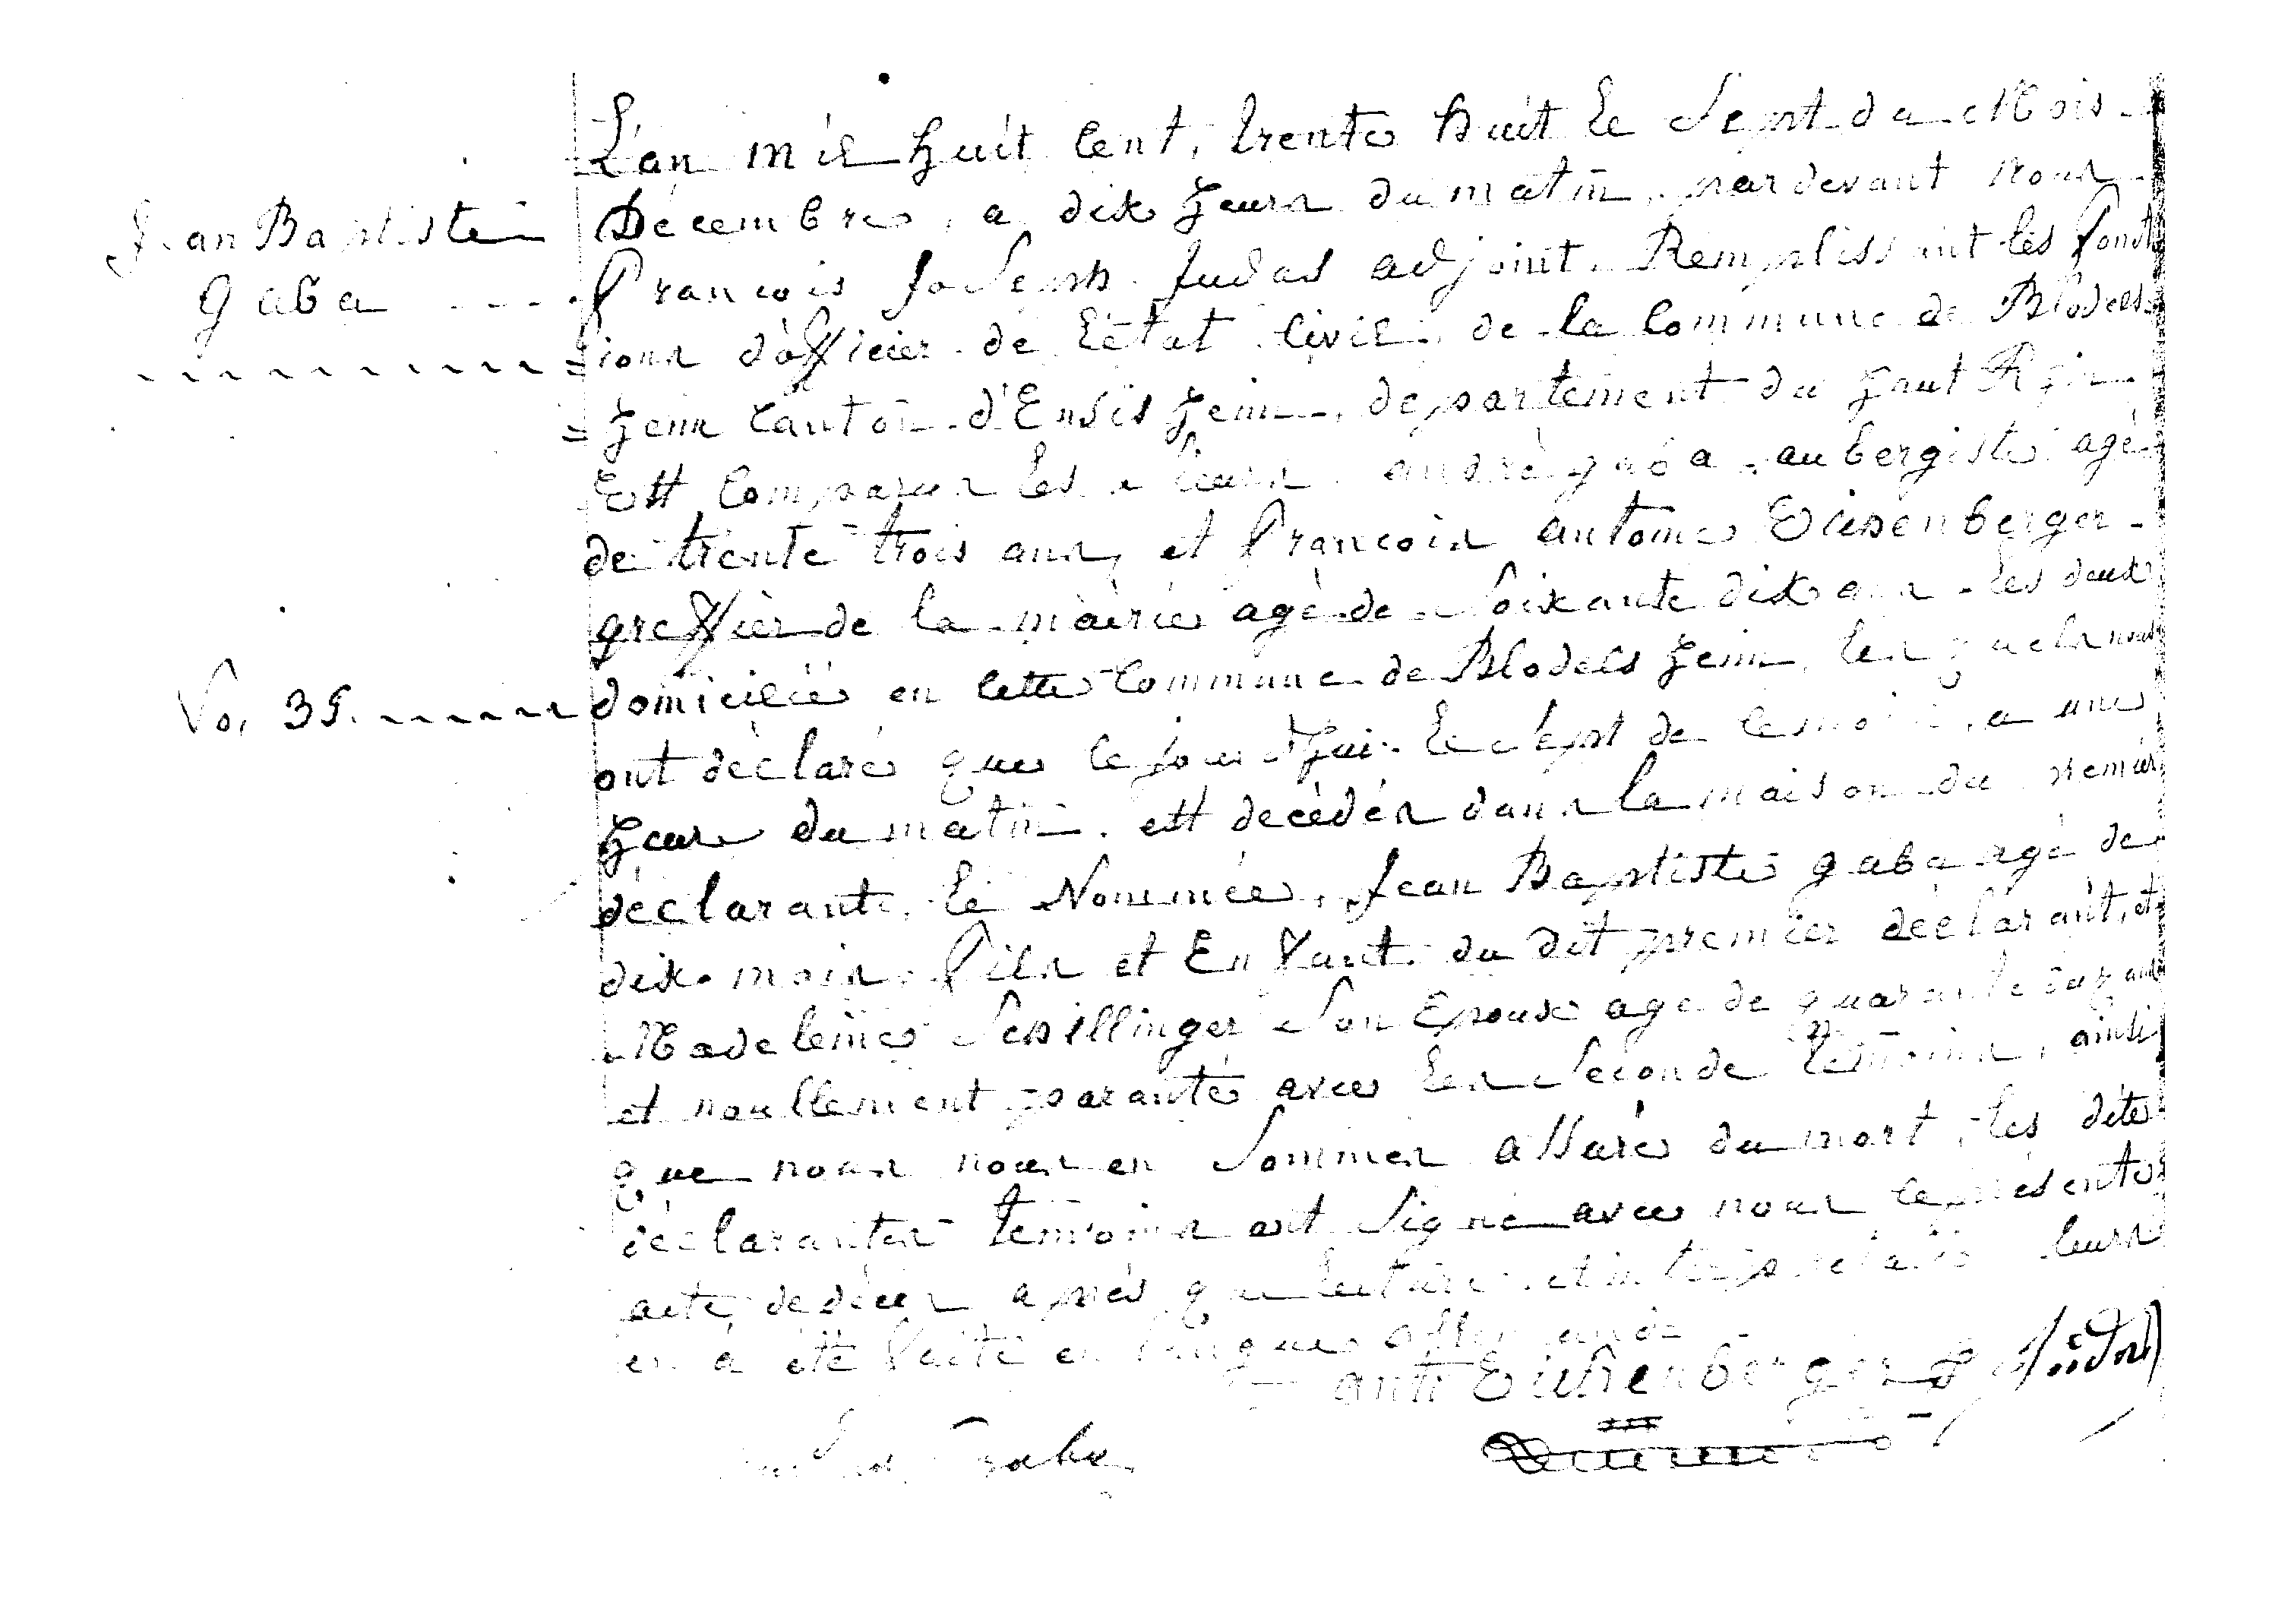 L'an mil huit Cent, trente huit le Sept du Mois
Jean Baptiste
Decembre, a dix heurs du matin, pardevant nous
gaba
François Joseph Judas adjoint. Remplissant les fonct
=ions d'officier de l'état Civil, de la Commune de Blodels
=heim Canton d'Ensisheim, departement du haut Rhin
Ett Comparus les sieurs andrè gaba aubergiste agé
de trente trois ans, et François antoine
greffier de la mairie agé de Soixante dix ans les deux
No, 39.
domiciliée en Cette Commune de Blodelsheim, les quels nous
ont déclaré que cejourd'hui le Sept de ce mois, a une
heure du matin. ett decédés dans la maison du premier
déclarant, le Nommée, Jean Baptiste gaba agé de
dix mois, fils et Enfant du dit premier déclarant, et
Madeleine Schillinger Son Epouse age de quarante ans
et noullement parante avec les Seconde témoins, ainsi
que nous nous en Sommes assuré du mort, les dite
déclarantes témoins ont Signé avec nous le présente
acte de décès après que lecture et leurs
en a été faite en langue allemande
ant
gaba